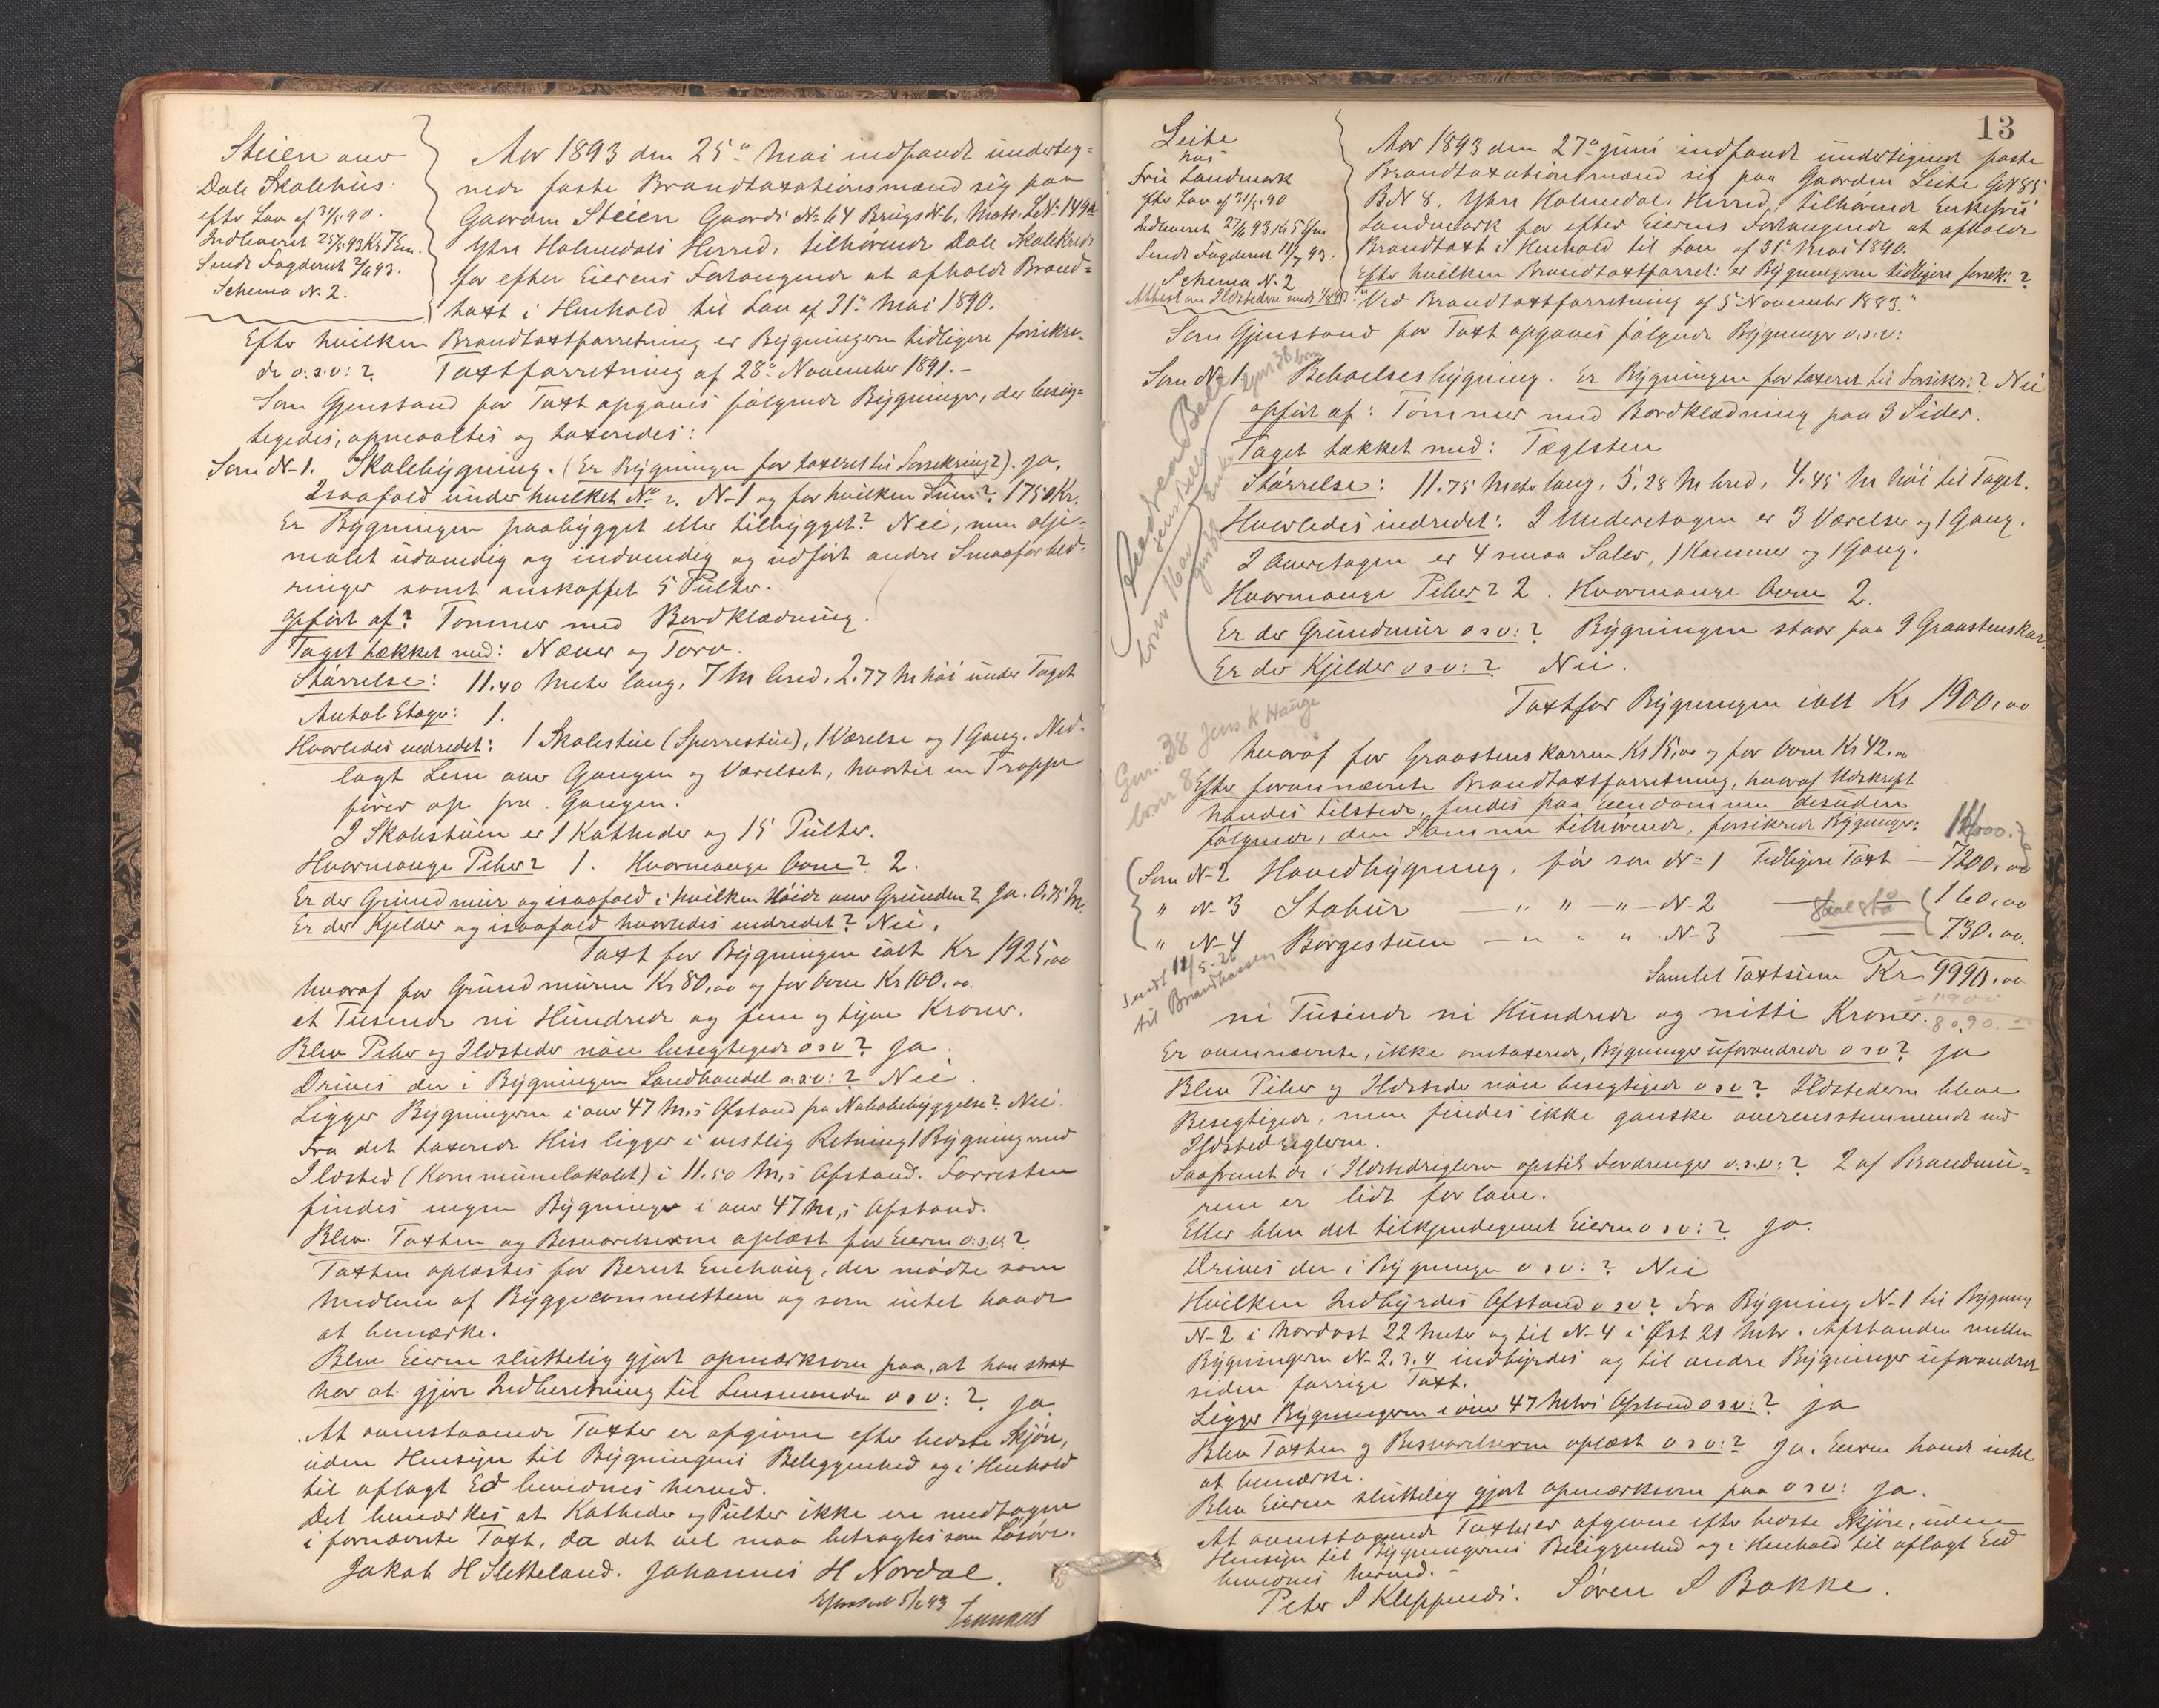 Steien over
Dale Skolehus:
efter Lov af 31/5 90.
Indleveret 25/5 93 Kl 7 Em.
Sendt Fogderiet 2/6 93.
Schema N. 2.
Aar 1893 den 25de Mai indfandt underteg=
nede faste Brandtaxationsmænd sig paa
Gaarden Steien Gaards No 64 Brugs N 6, Matr. L.No 149a
Ytre Holmedals Herred, tilhørende Dale Skolekreds
for efter Eierens Forlangende at afholde Brand=
taxt i Henhold til Lov af 31te Mai 1890.
Efter hvilken Brandtaxtforretning er Bygningerne tidligere forsikre-
de o.s.v: ? Taxtforretning af 28de November 1891. -
Som Gjenstand for Taxt opgaves følgende Bygninger, der besig=
tigedes, opmaaltes og taxeredes:
Som N-1. Skolebygning. (Er Bygningen før taxeret til Forsikring?). ja.
Isaafald under hvilket No ? N-1 og for hvilken Sum? 1750 Kr.
Er Bygningen paabygget eller tilbygget? Nei, men olje=
malet udvendig og indvendig og udført andre Smaaforbed=
ringer samt anskaffet 5 Pulter.
Opført af? Tømmer med Bordklædning.
Taget tækket med: Næver og Torv.
Størrelse: 11.40 Meter lang, 7 M bred, 2.77 M høi under Taget
Antal Etager: 1.
Hvorledes indredet: 1 Skolestue (Sperrestue), 1 Værelse og 1 Gang. Ned-
lagt Lem over Gangen og Værelset, hvortil en Trappe
fører op fra Gangen.
I Skolestuen er 1 Katheder og 15 Pulter.
Hvormange Piber? 1. Hvormange Ovne? 2.
Er der Grundmur og isaafald i hvilken Høide over Grunden? Ja. 0.75 M.
Er der Kjelder og isaafald hvorledes indredet? Nei.
Taxt for Bygningen ialt Kr 1925,00
hvoraf for Grundmuren Kr 80,00 og for Ovne Kr 100,00.
et Tusende ni Hundrede og fem og tyve Kroner.
Blev Piber og Ildsteder nøie besigtigede o s v? Ja.
Drives der i Bygningen Landhandel o.s.v: ? Nei.
Ligger Bygningerne i over 47 M,s Afstand fra Nabobebyggelse? Nei.
Fra det taxerede Hus ligger i vestlig Retning 1 Bygning med
Ildsted (Kommunelokalet) i 11.50 M,s Afstand. Forresten
findes ingen Bygninger i over 47 M,s Afstand.
Blev Taxten og Besvarelserne oplæst for Eieren o.s.v.?
Taxten oplæstes for Berent Enehaug, der mødte som
Medlem af Byggecommitteen og som intet havde
at bemærke.
Blev Eieren sluttelig gjort opmærksom paa, at han strax
har at gjøre Indberetning til Lensmanden o s v: ? ja
At ovenstaaende Taxter er afgivne efter bedste Skjøn,
uden Hensyn til Bygningens Beliggenhed og i Henhold
til aflagt Ed bevidnes herved.
Det bemærkes at Katheder og Pulter ikke ere medtagne
i fornævnte Taxt, da det vel maa betragtes som Løsøre.
Jakob H Sletteland. Johannes H Nordal.
13
Leite
hos
Fru Landmark
efter Lov af 31/5 90
Indleveret 27/6 93 Kl 5 Em
Sendt Fogderiet 11/7 93.
Schema N. 2
Aar 1893 den 27de Juni indfandt undertegnede faste
Brandtaxationsmænd sig paa Gaarden Leite G.N 85
B N 8, Ytre Holmedals Herred, tilhørende Enkefru
Landmark for efter Eierens Forlangende at afholde
Brandtaxt i Henhold til Lov af 31te Mai 1890.
Efter hvilken Brandtaxtforret: er Bygningerne tidligere forsik: ?
Ved Brandtaxtforretning af 5te November 1883.
Som Gjenstand for Taxt opgaves følgende Bygninger o.s.v:
Som N-1 Beboelsesbygning. Er Bygningen før taxeret til Forsikr: ? Nei
opført af: Tømmer med Bordklædning paa 3 Sider.
Taget tækket med: Tæglsten
Størrelse: 11.75 Meter lang, 5,28 M bred, 4.45 M høi til Taget.
Hvorledes indredet: I Underetagen er 3 Værelser og 1 Gang.
I Overetagen er 4 smaa Saler, 1 Kammer og 1 Gang.
Hvormange Piber? 2. Hvormange Ovne 2.
Er der Grundmur o s v: ? Bygningen staar paa 9 Graastenskar
Er der Kjelder o s v: ? Nei.
Taxt for Bygningen ialt Kr 1900,00
Gnr. 38 Jens K Hauge
bnr 8
hvoraf for Graastenskarrene Kr 15,00 og for Ovne Kr 42,00
Efter forannævnte Brandtaxtforretning, hvoraf Udskrift
havdes tilstede, findes paa Eiendommen desuden
følgende, den Samme tilhørende, forsikrede Bygninger:
Som N-2 Hovedbygning, før som N-1 Tidligere Taxt - 7200,00
" N-3 Stabur - " " - " - N-2 160,00
skal stå
" N-4 Borgestuen - " " " N-3 730,00.
Sendt 12/5-26
til Brandkassen
Samlet Taxtsum Kr 9990,00
ni Tusinde ni Hundrede og nitti Kroner.
8090.00
Er ovennævnte, ikke omtaxerede, Bygninger uforandrede o s v? ja
Blev Piber og Ildsteder nøie besigtigede o s v? Ildstederne bleve
Besigtigede, men findes ikke ganske overensstemmende med
Ildstedreglerne.
Saafremt de i Ildstedreglerne opstil. Fordringer o.s.v: ? 2 af Brandmu=
rene er lidt for lave.
Eller blev det tilkjendegivet Eieren o s v: ? ja.
Drives der i Bygningen o s v: ? Nei
Hvilken Indbyrdes Afstand o s v? Fra Bygning N-1 til Bygning
N-2 i Nordost 22 Meter og til N-4 i Øst 21 Metr. Afstanden mellem
Bygningerne N-2.3.4 indbyrdes og til andre Bygninger uforandret
siden forrige Taxt.
Ligger Bygningerne i over 47 Metrs Afstand o s v: ? ja
Blev Taxten og Besvarelserne oplæst o s v: ? Ja. Eieren havde intet
at bemærke.
Blev Eieren sluttelig gjort opmærksom paa o s v: ja.
At ovenstaaende Taxter er afgivne efter bedste Skjøn, uden
Hensyn til Bygningernes Beliggenhed og i Henhold til aflagt Ed
bevidnes herved. -
Peter S Kleppenes. Søren S Bakke.